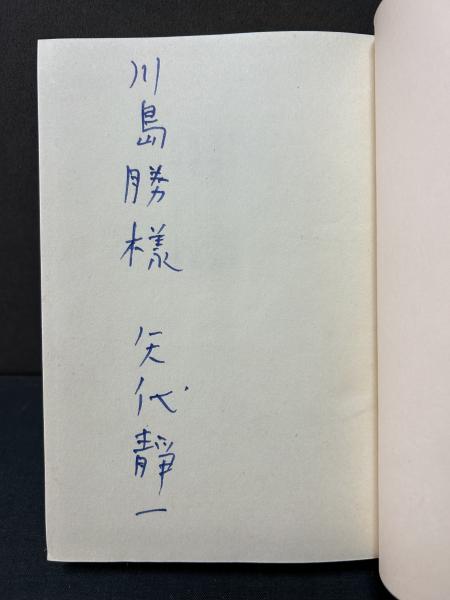 川島勝様 矢代静一